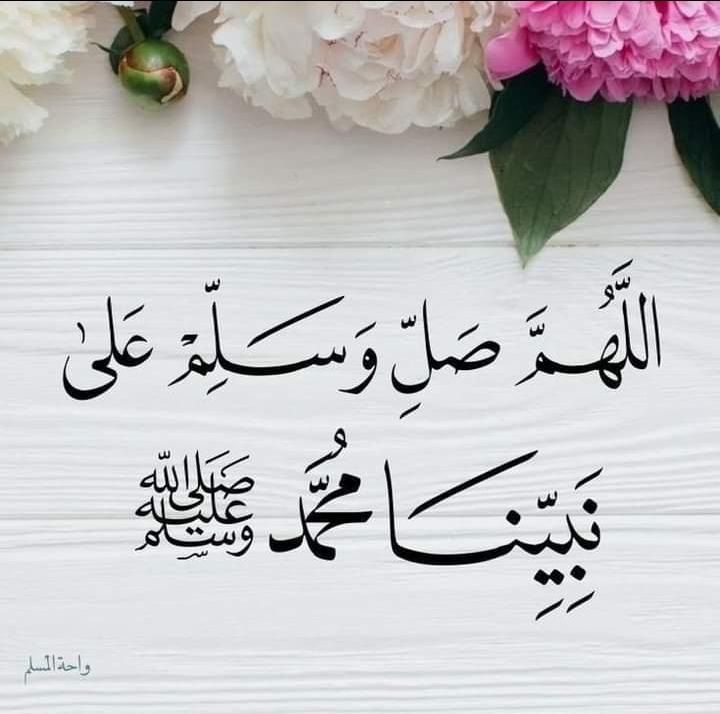 اللَّهُمَّ صَلِّ وَسَلِّمْ عَلىٰ
نَبِيِّنَا مُحَمَّد ﷺ
واحة المسلم